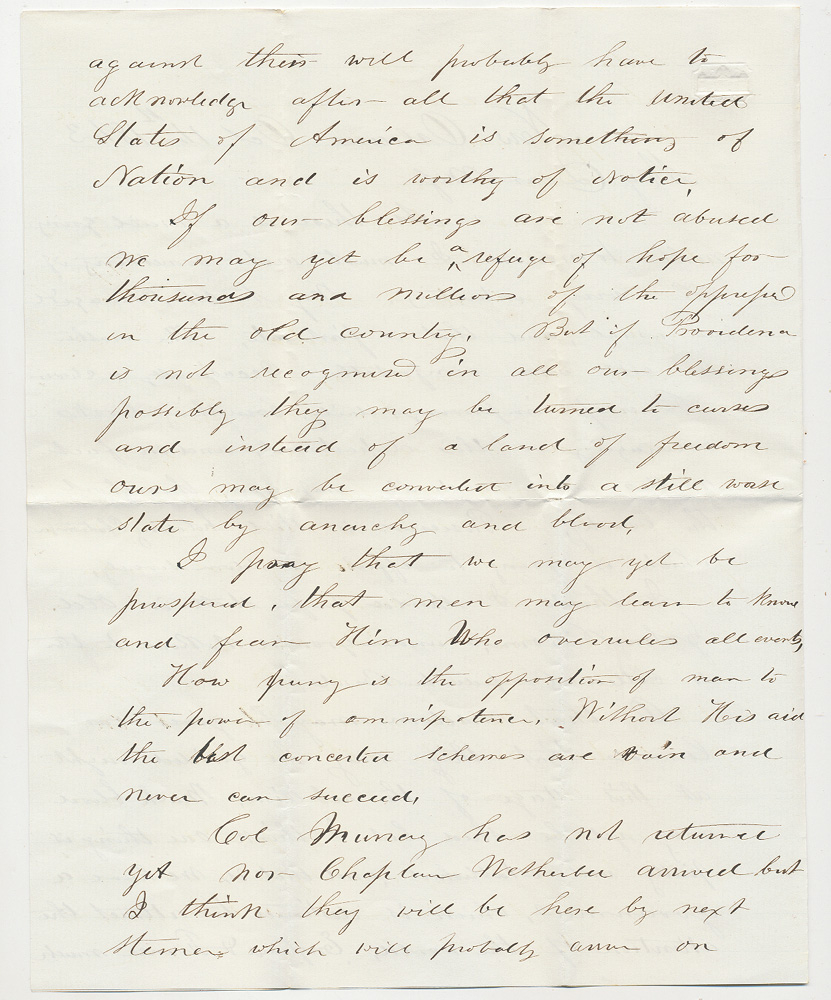 against them will probably have to
acknowledge after all that the United
States of America is something of
Nation and is worthy of notice,
If our blessings are not abused
we may yet be a refuge of hope for
thousands and millions of the oppressed
in the old country. But if Providence
is not recognised in all our blessings
possibly they may be turned to curses
and instead of a land of freedom
ours may be converted into a still worse
state by anarchy and blood,
I pray that we may yet be
prospered, that men may learn to know
and fear Him Who overrules all events,
How puny is the opposition of man to
the power of omnipotence. Without His aid
the best concerted schemes are vain and
never can succeed.
Col Murray has not returned
yet nor Chaplain Wetherbee arrived but
I think they will be here by next
stemer which will probably arrive on